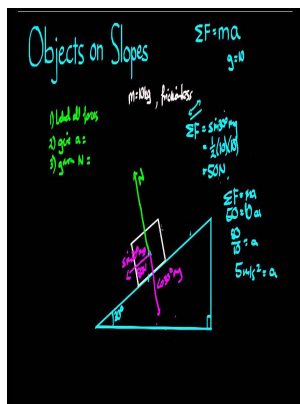 Objects on Slopes
ΣF=ma
g=10
m=10kg, frictionless
1) Label all forces
2) give a=
3) given N=
ΣF=sin30°mg
=½(10)(10)
=50N
ΣF=ma
50=10a
50/10=a
5m/s²=a
N
sin30°mg
50N
cos30°mg
30°